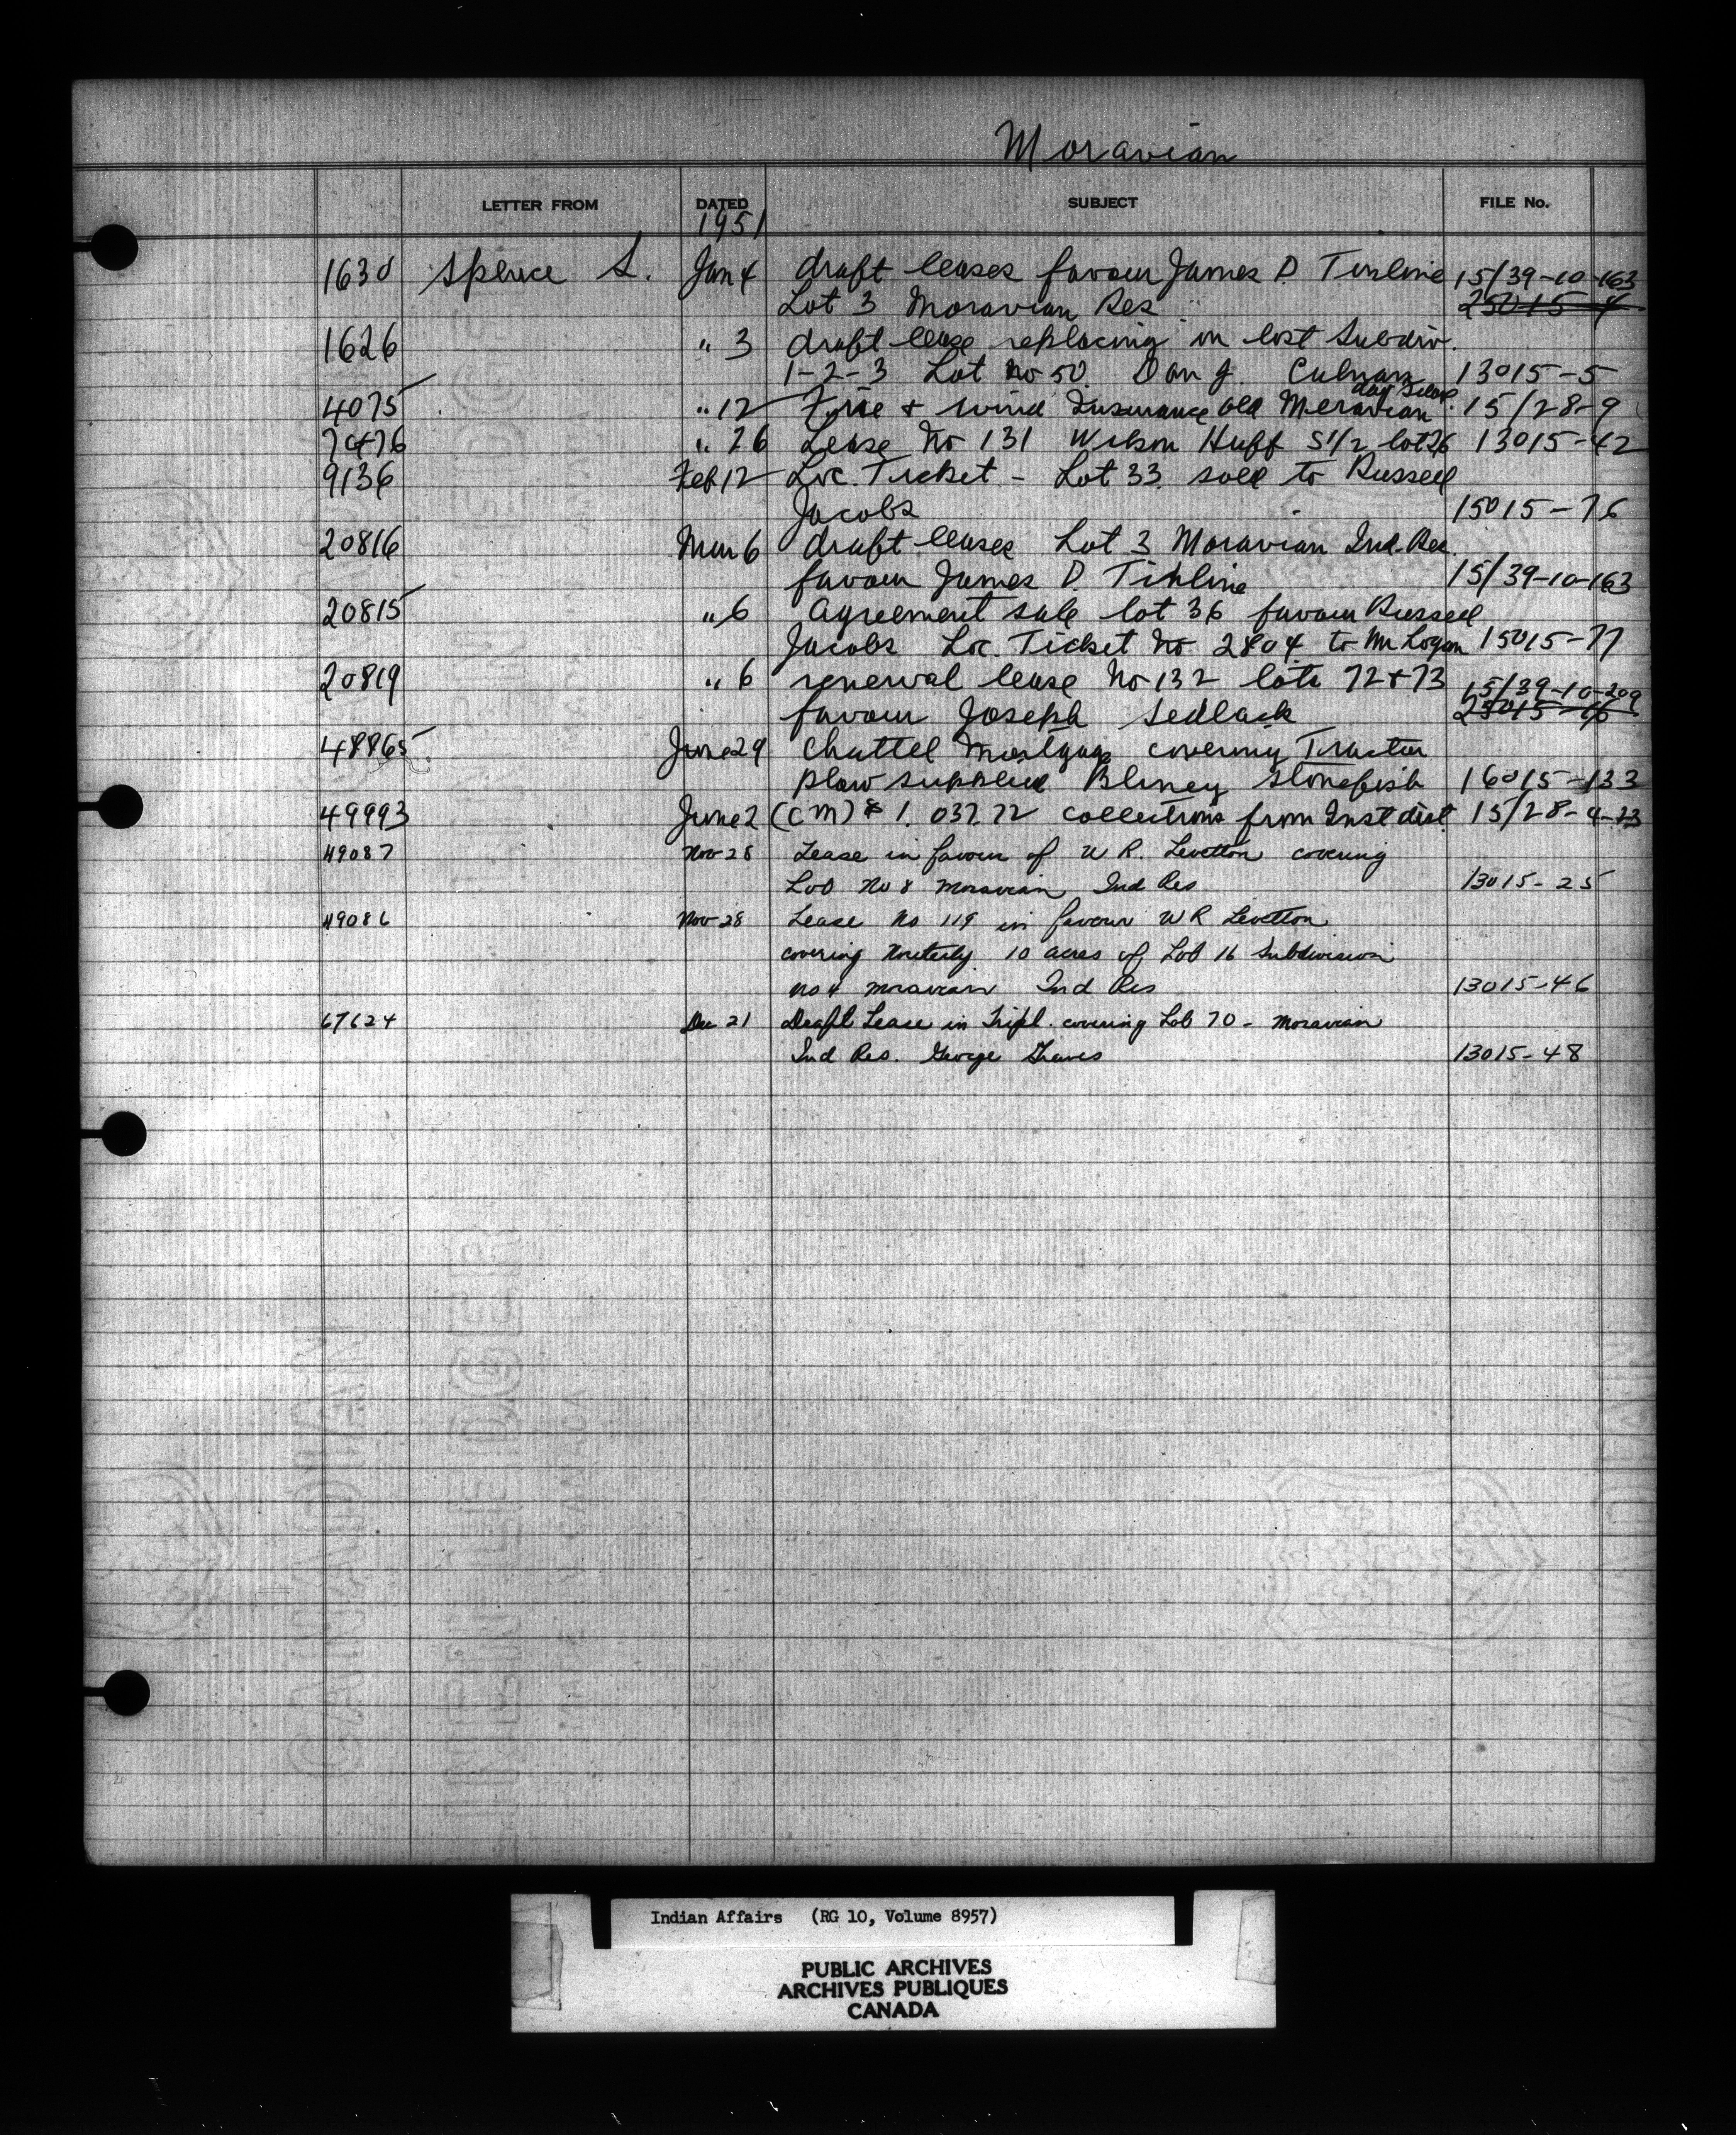 Moravian
LETTER FROM DATED SUBJECT FILE No.
1951
1630 Spence S. Jan 4 draft leases favour James D. Tinline 15/39-10-163
Lot 3 Moravian Res 25015-4
1626 " 3 draft lease replacing in lost Subdiv.
1-2-3 Lot No 50 Dan J. Culnan 13015-5
day School
4075 " 12 Fire + wind Insurance old Moravian 15/28-9
7476 " 26 Lease No 131 Wilson Huff S 1/2 lot 26 13015-42
9136 Feb 12 Loc. Ticket - Lot 33 sold to Russell
Jacobs 15015-76
20816 Mar 6 draft leases Lot 3 Moravian Ind. Res.
favour James D. Tinline 15/39-10-163
20815 " 6 agreement sale lot 36 favour Russell
Jacobs Loc. Ticket No 2804 to Mr Logan 15015-77
20819 " 6 renewal lease No 132 lots 72+73 15/39-10-209
favour Joseph Sedlack 25015-16
48865 June 29 Chattel Mortgage covering Tractor
plow supplied Bliney Stonefish 16015-133
49993 June 2 (CM) $ 1,037.72 collections from Inst dist 15/28-4-23
49087 Nov 28 Lease in favour of W R. Levetton covering
Lot No 8 Moravian Ind Res 13015-25
49086 Nov 28 Lease No 119 in favour W R Levetton
covering Northerly 10 acres of Lot 16 Subdivision
No 4 Moravian Ind Res 13015-46
67624 Dec 21 Draft Lease in Tripl. covering Lot 70 - Moravian
Ind Res. George 13015-48
Indian Affairs (RG 10, Volume 8957)
PUBLIC ARCHIVES
ARCHIVES PUBLIQUES
CANADA